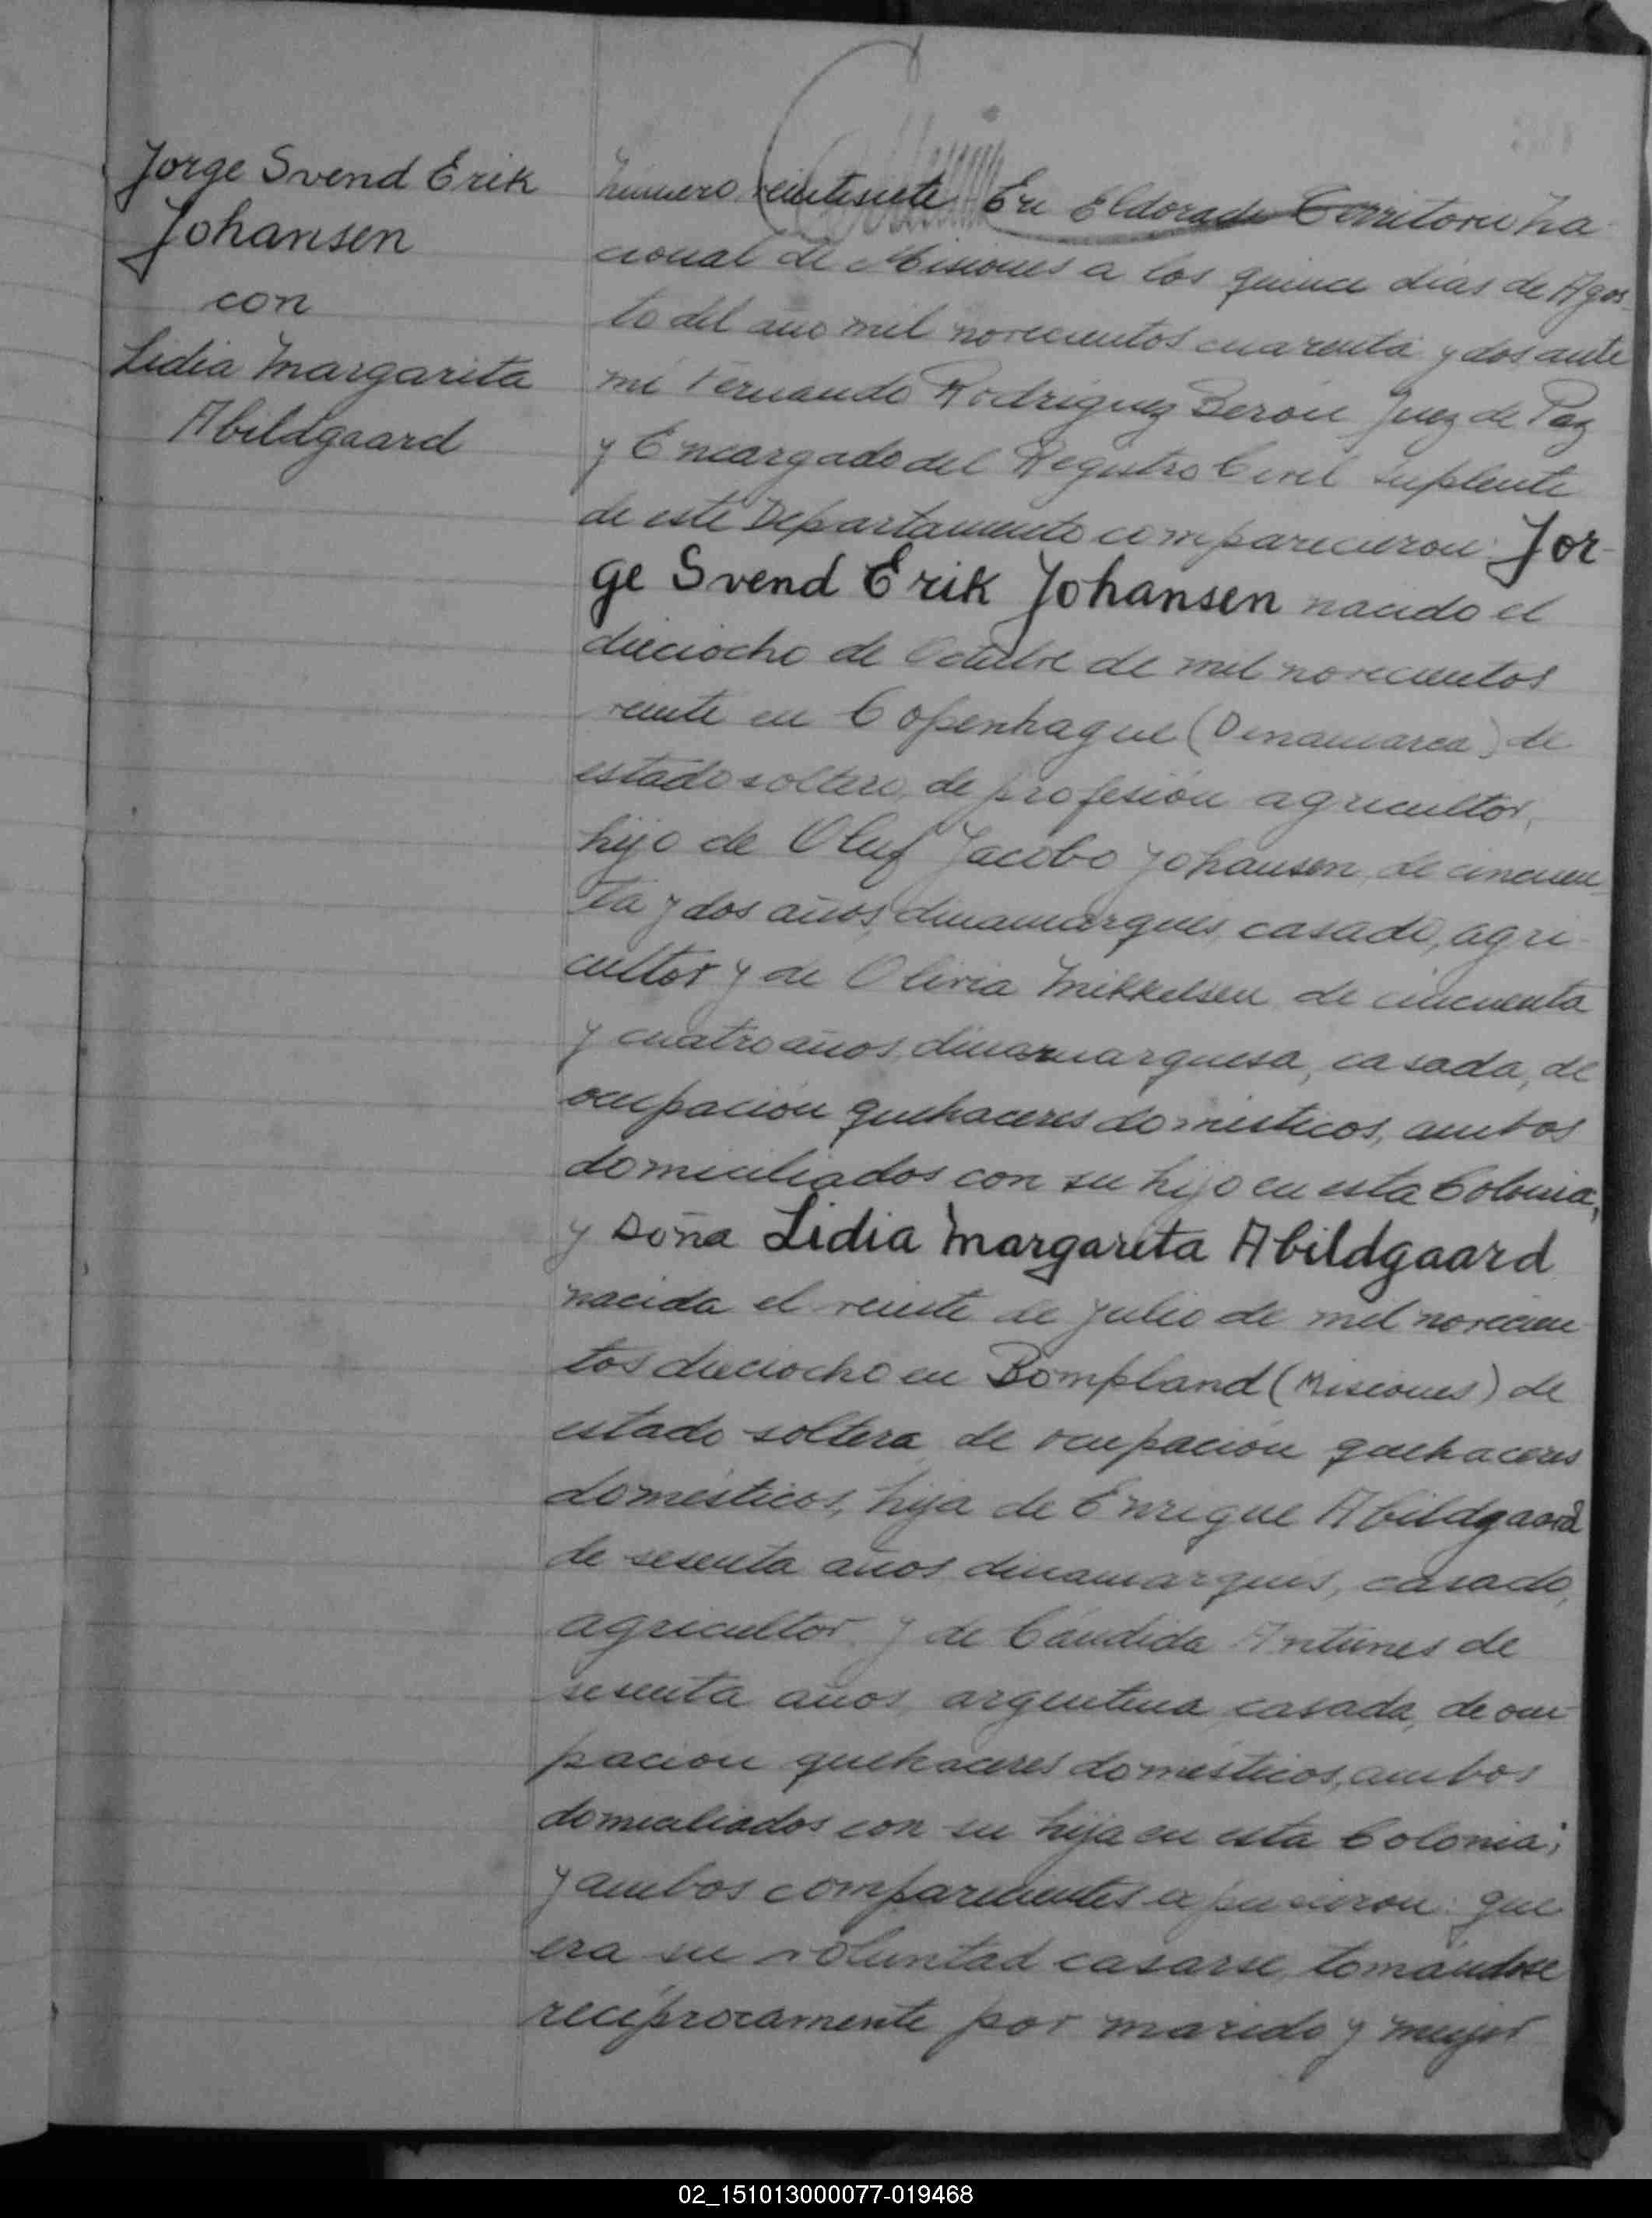 Jorge Svend Erik
Johansen
con
Lidia Margarita
Abildgaard
Número veintisiete En Eldorado Territorio Na-
cional de Misiones a los quince días de Agos-
to del año mil novecientos cuarenta y dos ante
mí Fernando Rodríguez Berón Juez de Paz
y Encargado del Registro Civil suplente
de este Departamento comparecieron: Jor-
ge Svend Erik Johansen nacido el
dieciocho de Octubre de mil novecientos
veinte en Copenhague (Dinamarca) de
estado soltero, de profesión agricultor,
hijo de Oluf Jacobo Johansen, de cincuen-
ta y dos años, dinamarqués, casado, agri-
cultor y de Olivia Mikkelsen, de cincuenta
y cuatro años, dinamarquesa, casada, de
ocupación quehaceres domésticos, ambos
domiciliados con su hijo en esta Colonia,
y doña Lidia Margarita Abildgaard
nacida el veinte de Julio de mil novecien-
tos dieciocho en Bompland (Misiones) de
estado soltera, de ocupación quehaceres
domésticos, hija de Enrique Abildgaard
de sesenta años, dinamarqués, casado,
agricultor, y de Cándida Antunes de
sesenta años, argentina, casada, de ocu-
pación quehaceres domésticos, ambos
domiciliados con su hija en esta Colonia;
y ambos comparecientes expusieron: que
era su voluntad casarse, tomándose
recíprocamente por marido y mujer
02_151013000077-019468